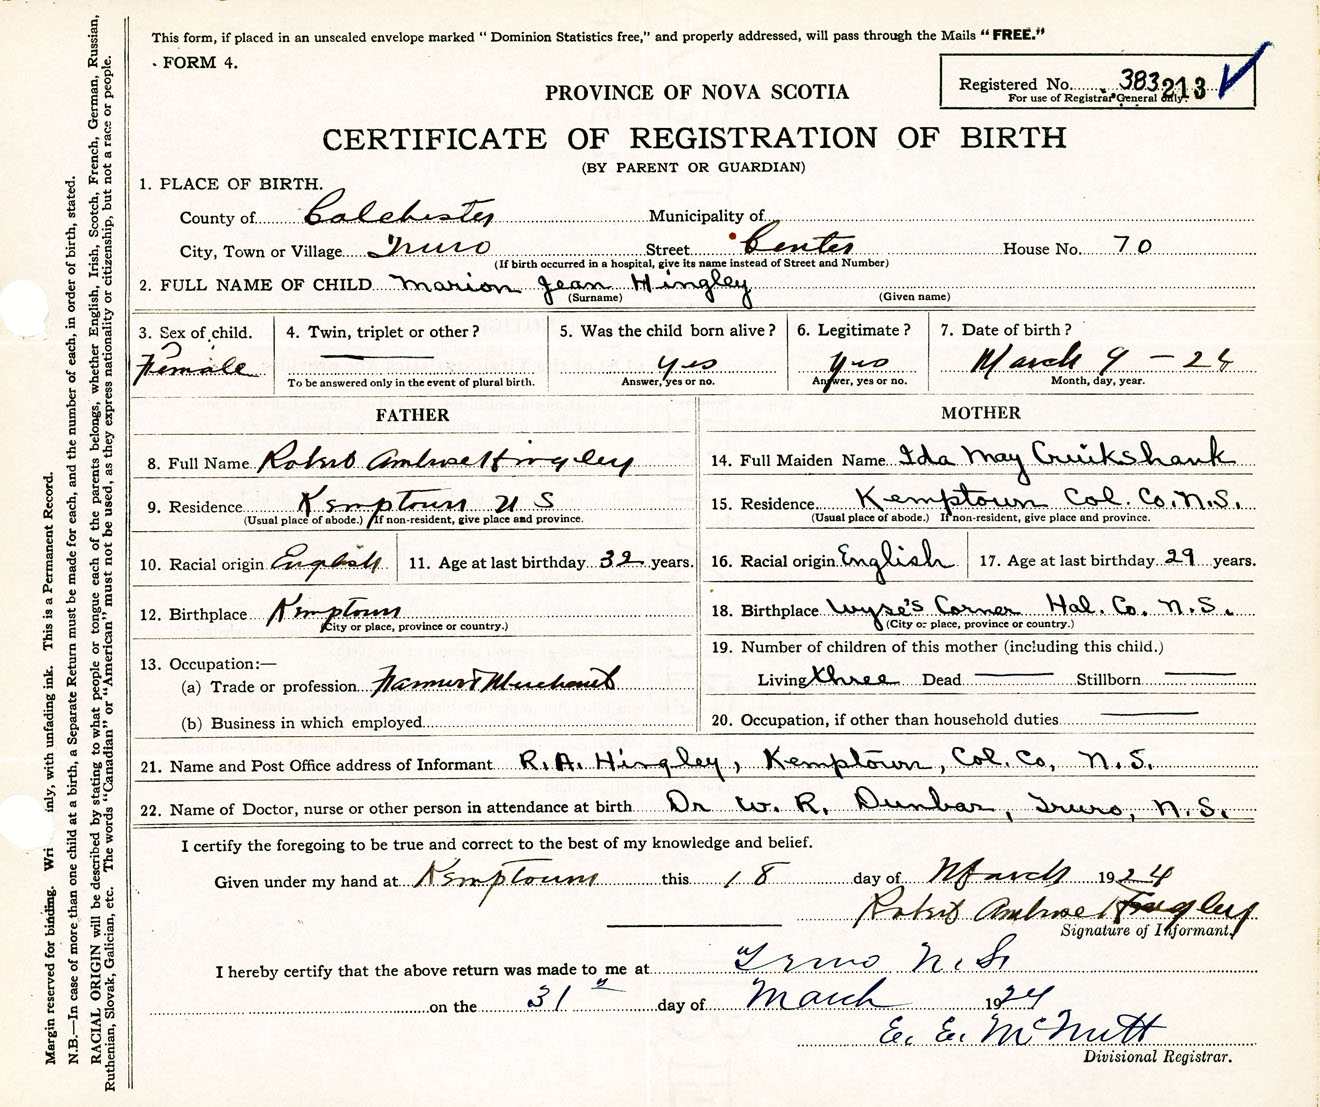 This form, if placed in an unsealed envelope marked " Dominion Statistics free," and properly addressed, will pass through the Mails "FREE."
FORM 4.
Registered No. 383213
For use of Registrar General only.
PROVINCE OF NOVA SCOTIA
CERTIFICATE OF REGISTRATION OF BIRTH
(BY PARENT OR GUARDIAN)
1. PLACE OF BIRTH.
County of Colchester Municipality of
City, Town or Village Truro Street Center House No. 70
(If birth occurred in a hospital, give its name instead of Street and Number)
2. FULL NAME OF CHILD Marion Jean Hingley
(Surname) (Given name)
3. Sex of child. 4. Twin, triplet or other? 5. Was the child born alive? 6. Legitimate? 7. Date of birth?
Female yes yes March 9 - 24
To be answered only in the event of plural birth. Answer, yes or no. Answer, yes or no. Month, day, year.
FATHER
8. Full Name Robert Ambrose Hingley
9. Residence Kemptown N S
(Usual place of abode.) If non-resident, give place and province.
10. Racial origin English 11. Age at last birthday 32 years.
12. Birthplace Kemptown
(City or place, province or country.)
13. Occupation:—
(a) Trade or profession Farmer & Merchant
(b) Business in which employed
MOTHER
14. Full Maiden Name Ida May Cruikshank
15. Residence Kemptown Col. Co. N.S.
(Usual place of abode.) If non-resident, give place and province.
16. Racial origin English 17. Age at last birthday 29 years.
18. Birthplace Wyse's Corner Hal. Co. N.S.
(City or place, province or country.)
19. Number of children of this mother (including this child.)
Living three Dead Stillborn
20. Occupation, if other than household duties
21. Name and Post Office address of Informant R.A. Hingley, Kemptown, Col. Co, N.S.
22. Name of Doctor, nurse or other person in attendance at birth Dr W. R. Dunbar, Truro, N.S.
I certify the foregoing to be true and correct to the best of my knowledge and belief.
Given under my hand at Kemptown this 18 day of March 1924
Robert Ambrose Hingley
Signature of Informant.
I hereby certify that the above return was made to me at Truro N.S.
on the 31" day of March 1924
E. E. McNutt
Divisional Registrar.
Margin reserved for binding. Wri inly, with unfading ink. This is a Permanent Record.
N.B.—In case of more than one child at a birth, a Separate Return must be made for each, and the number of each, in order of birth, stated.
RACIAL ORIGIN will be described by stating to what people or tongue each of the parents belongs, whether English, Irish, Scotch, French, German, Russian,
Ruthenian, Slovak, Galician, etc. The words "Canadian" or "American" must not be used, as they express nationality or citizenship, but not a race or people.